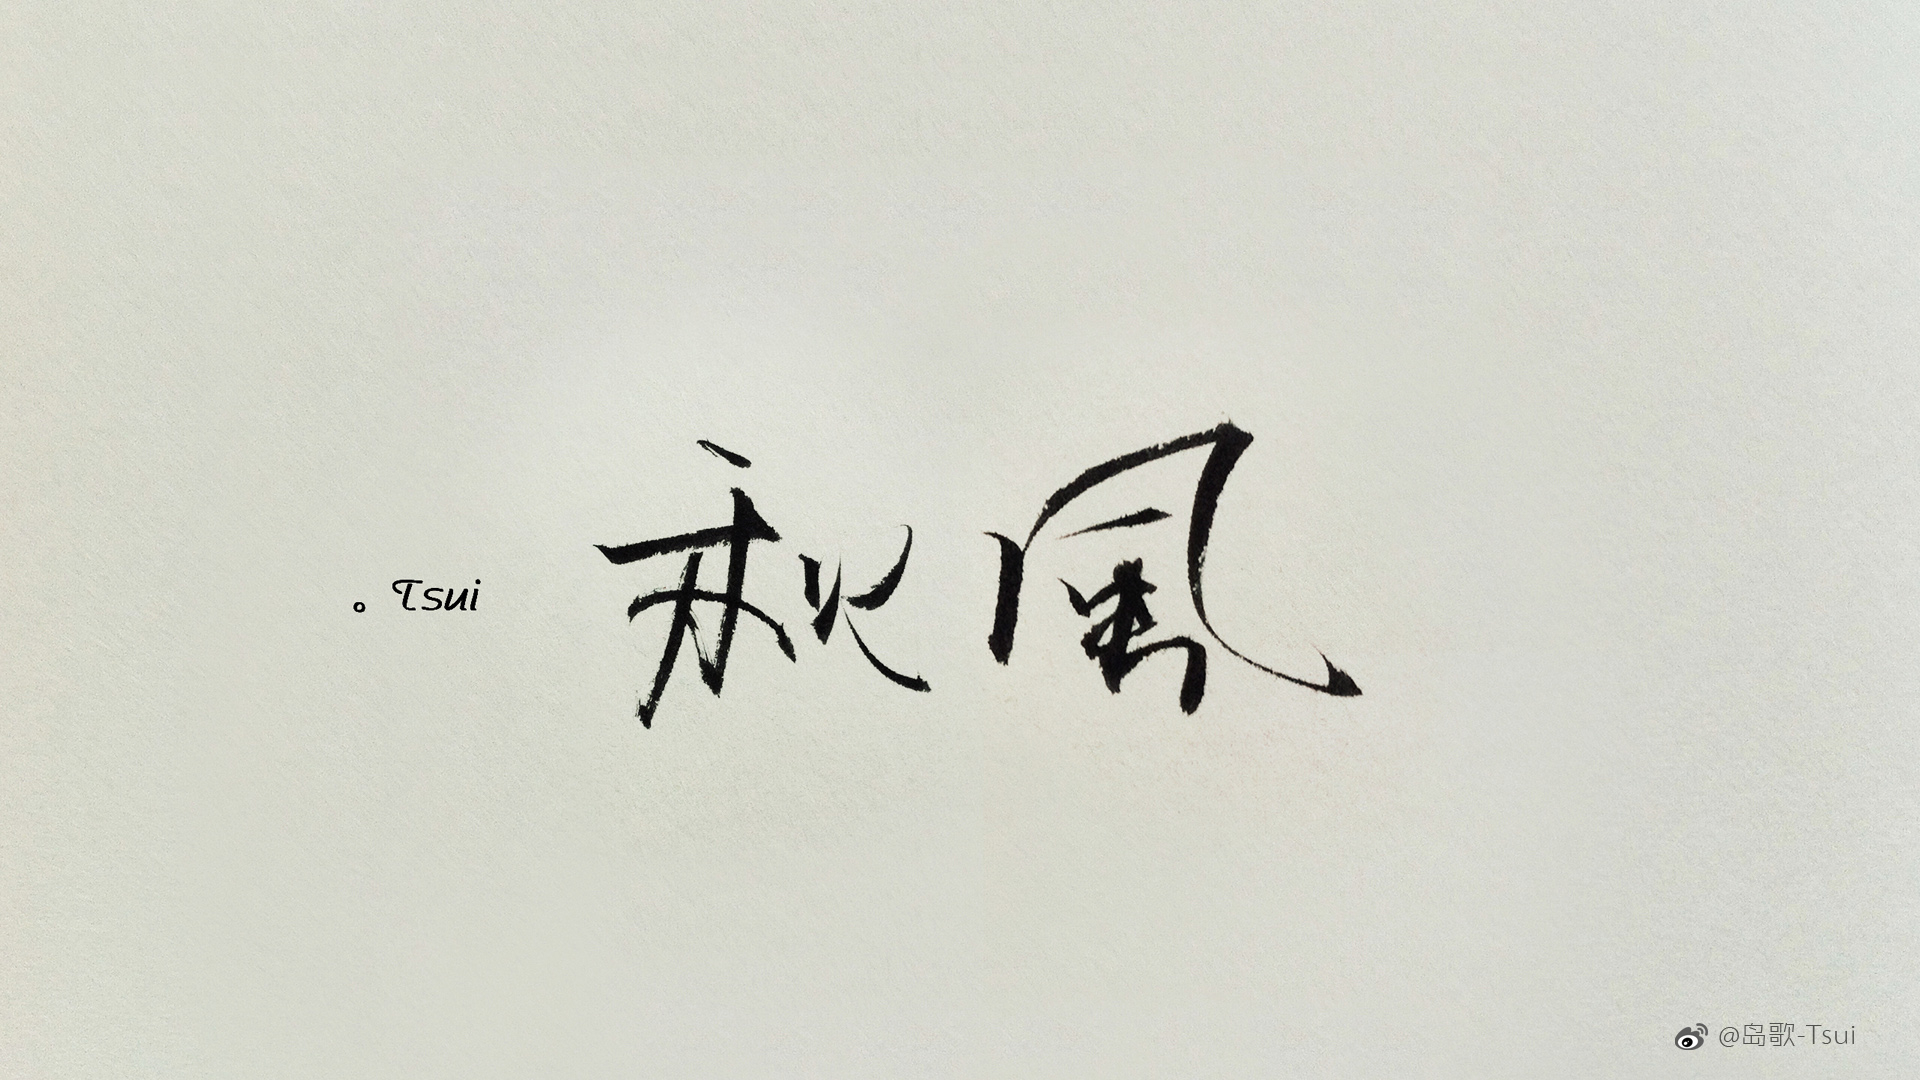 。Tsui 秋風
@岛歌-Tsui